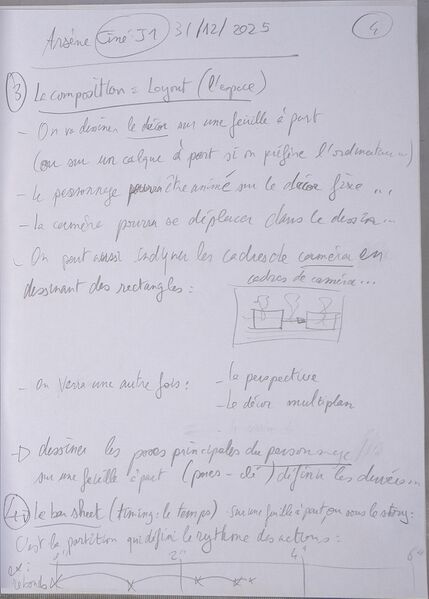 Arsène Ciné J1 31/12/2025 4
3 Le composition = Layout (l'espace)
- On va dessiner le décor sur une feuille à part
(ou sur un calque à part si on préfère l'ordinateur...)
- Le personnage pourra être animé sur le décor fixe...
- La caméra pourra se déplacer dans le dessin...
- On peut aussi indiquer les cadres de caméra en
dessinant des rectangles :
cadres de caméra...
- On verra une autre fois : - La perspective
- Le décor multiplan
dessiner les poses principales du personnage
sur une feuille à part (poses-clé) définir les
4 Le bar sheet (timing : le temps) sur une feuille à part ou sous le story :
C'est la partition qui défini le rythme des actions :
1" 2" 4" 6"
ex :
rebonds